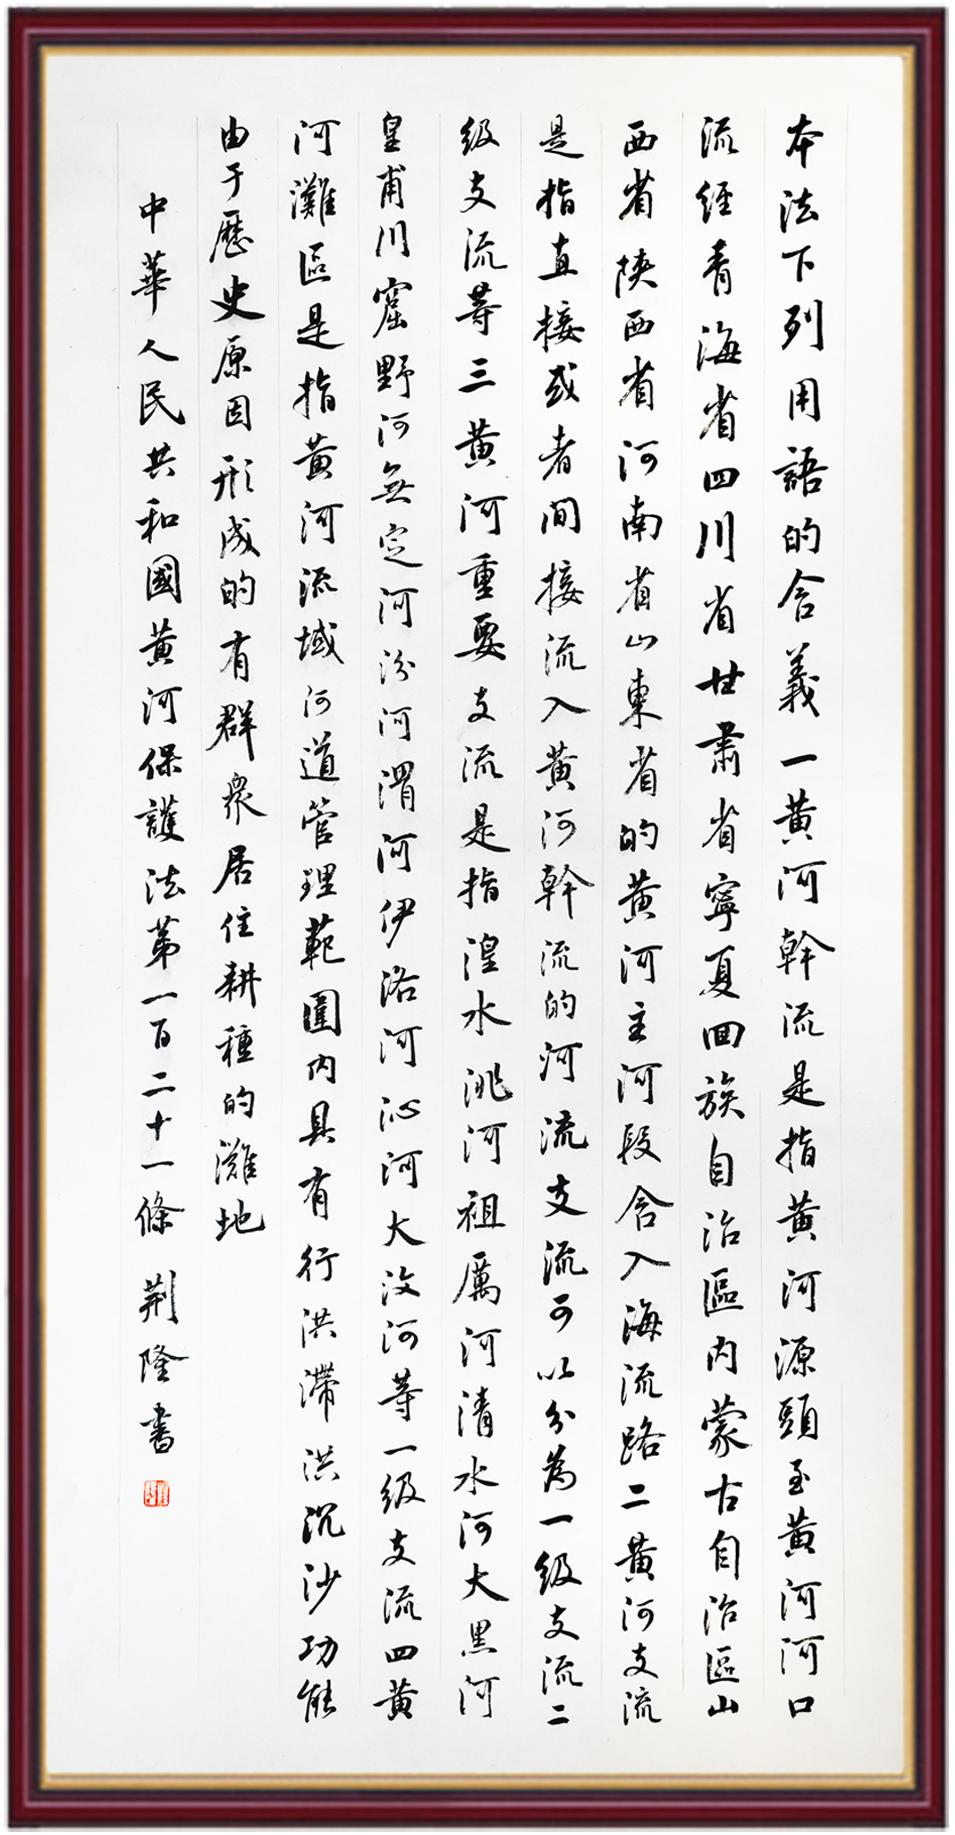 本法下列用語的含義一黃河幹流是指黃河源頭至黃河河口
流經青海省四川省甘肅省寧夏回族自治區內蒙古自治區山
西省陝西省河南省山東省的黃河主河段含入海流路二黃河支流
是指直接或者間接流入黃河幹流的河流支流可以分為一級支流二
級支流等三黃河重要支流是指湟水洮河祖厲河清水河大黑河
皇甫川窟野河無定河汾河渭河伊洛河沁河大汶河等一級支流四黃
河灘區是指黃河流域河道管理範圍內具有行洪滯洪沉沙功能
由于歷史原因形成的有群衆居住耕種的灘地
中華人民共和國黃河保護法第一百二十一條 荆隆書